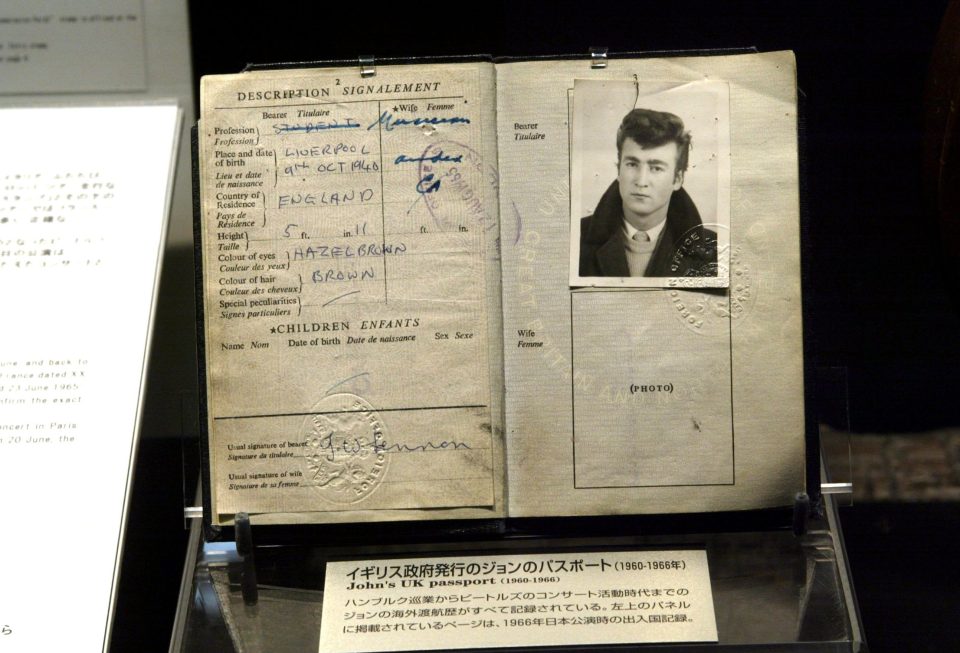 2
DESCRIPTION SIGNALEMENT
Bearer Titulaire
★Wife Femme
Profession STUDENT Musician
Profession
Place and date of birth LIVERPOOL
Lieu et date de naissance 9th OCT 1940
Country of Residence ENGLAND
Pays de Résidence
Height 5 ft. in. 11 ft. in.
Taille
Colour of eyes HAZEL BROWN
Couleur des yeux
Colour of hair BROWN
Couleur des cheveux
Special peculiarities
Signes particuliers
★CHILDREN ENFANTS
Name Nom Date of birth Date de naissance Sex Sexe
Usual signature of bearer J. W. Lennon
Signature du titulaire
Usual signature of wife
Signature de sa femme
3
Bearer
Titulaire
FOREIGN OFFICE
Wife
Femme
(PHOTO)
イギリス政府発行のジョンのパスポート(1960-1966年)
John's UK passport (1960-1966)
ハンブルク巡業からビートルズのコンサート活動時代までの
ジョンの海外渡航歴がすべて記録されている。左上のパネル
に掲載されているページは、1966年日本公演時の出入国記録。
une and back to
France dated XX
d 23 June 1965
nfirm the exact
oncert in Paris
n 20 June, the
ら